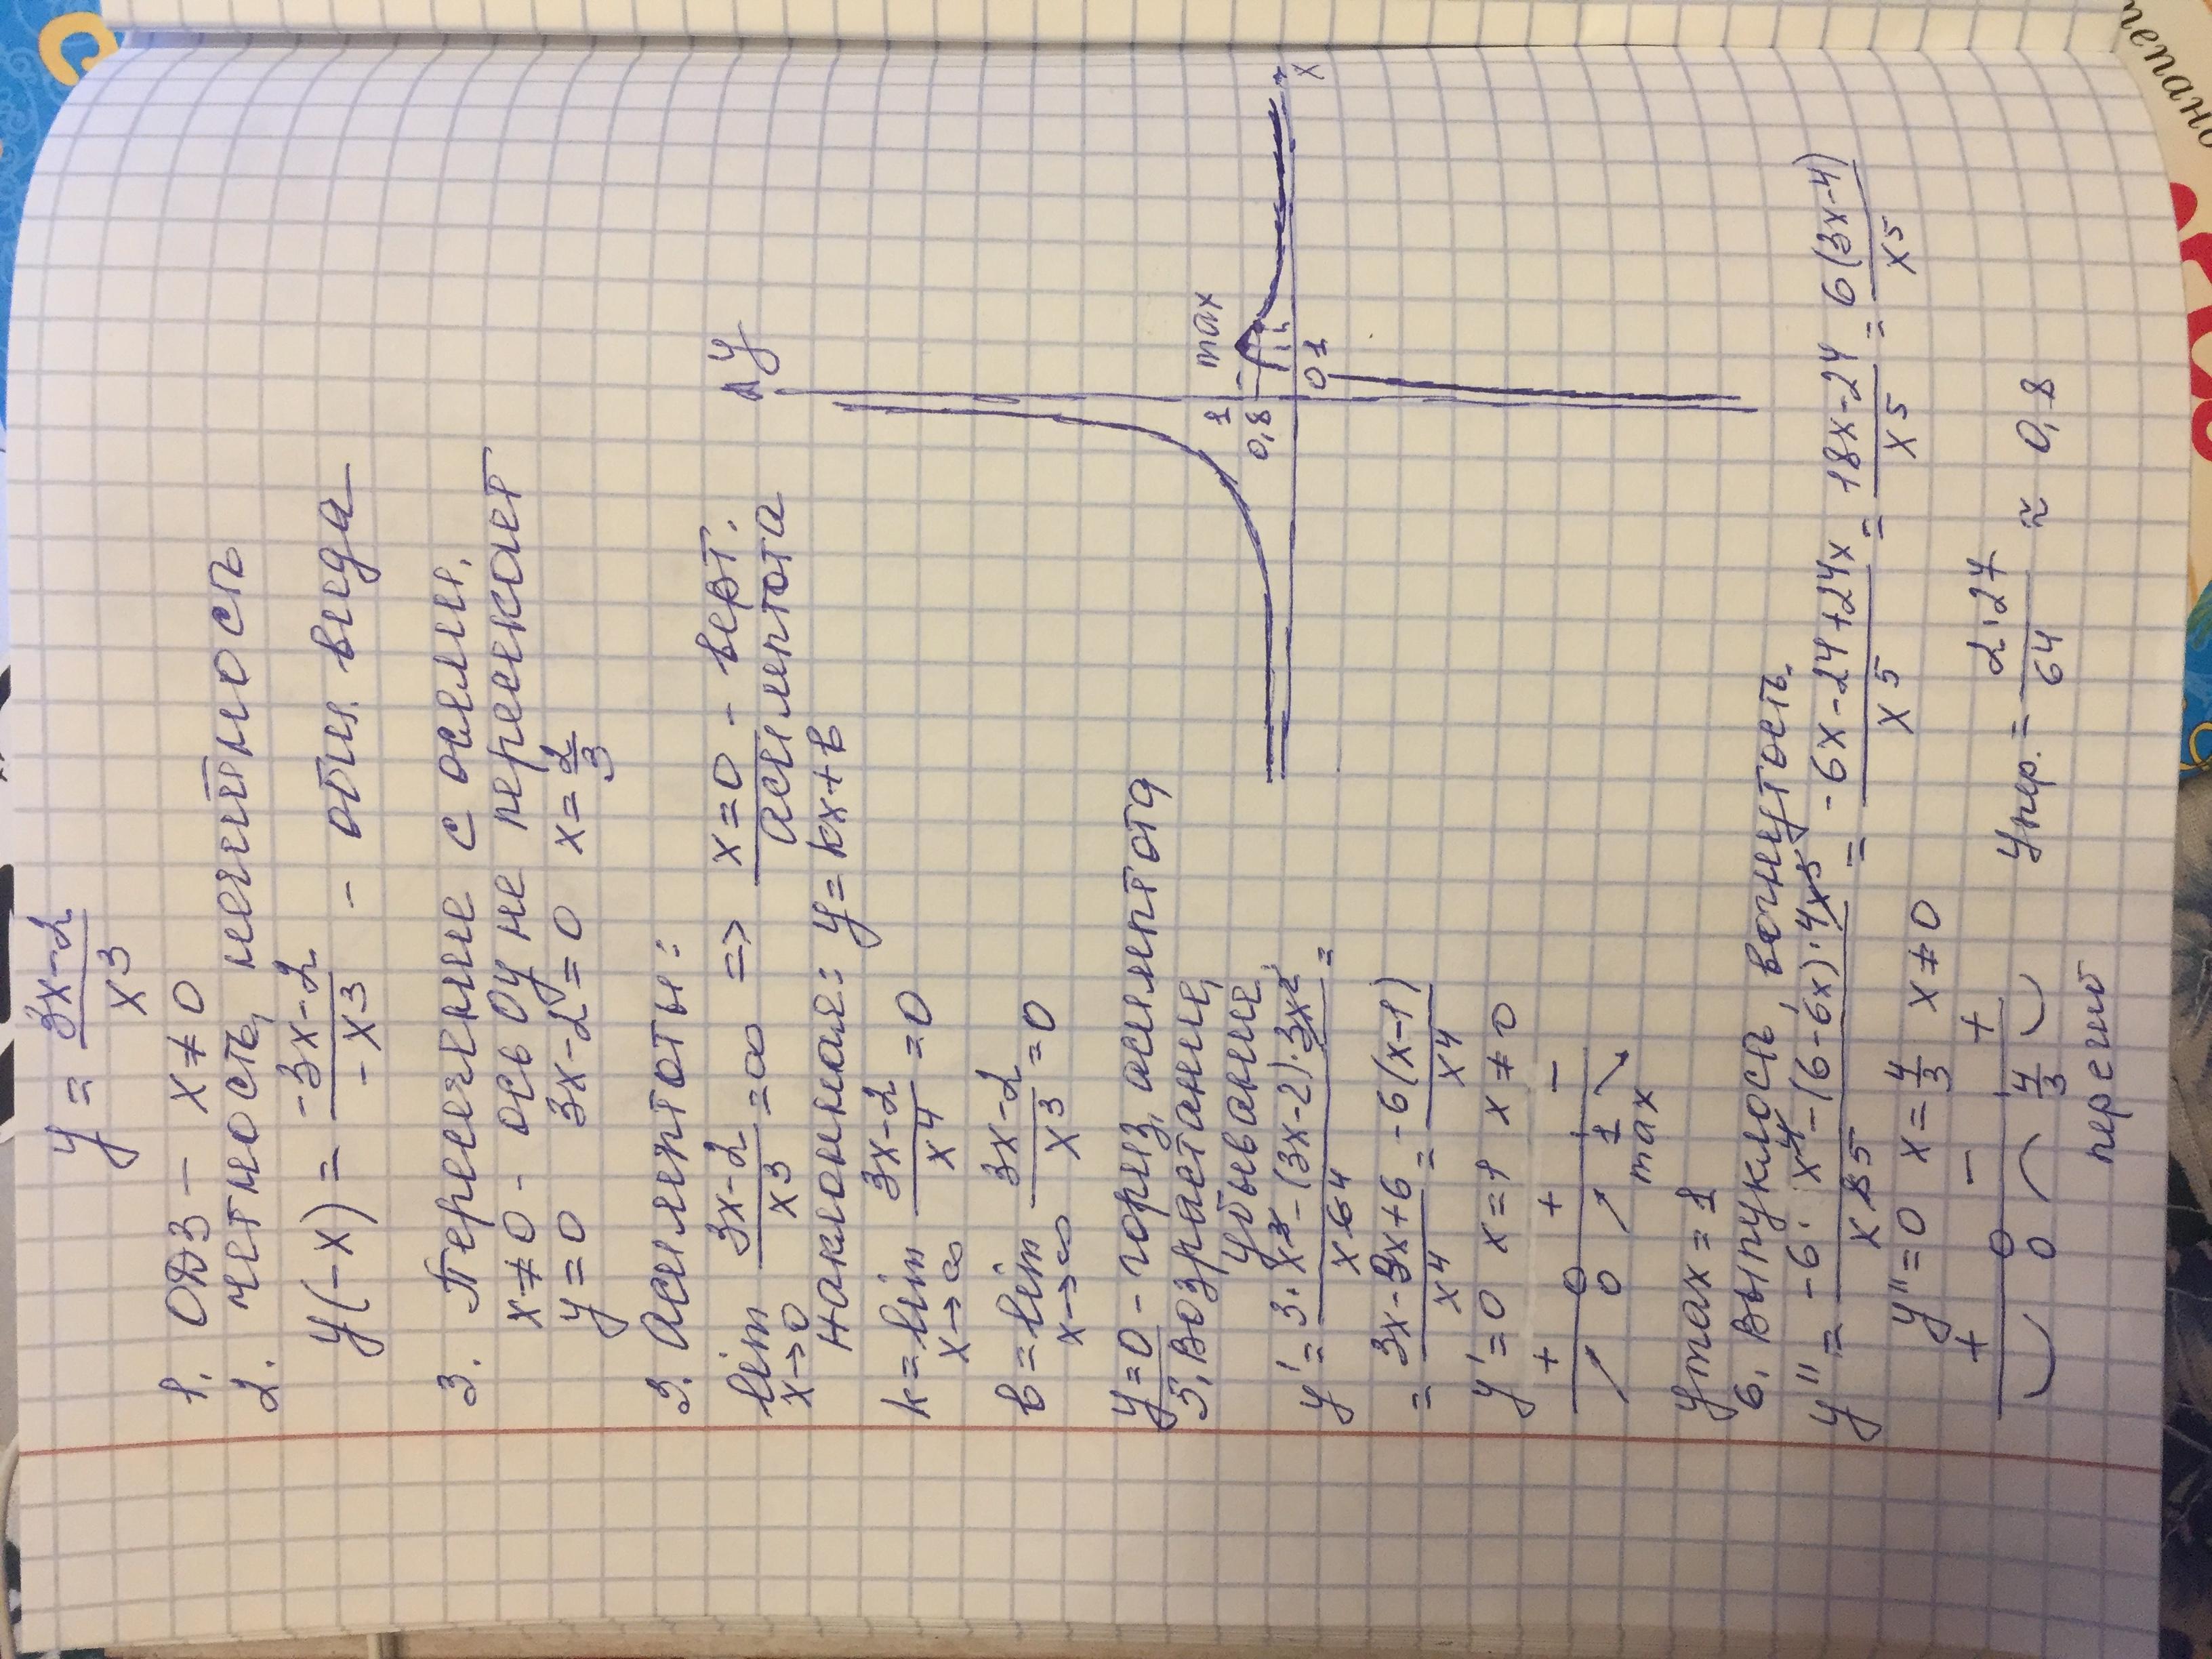 y = (3x-2)/x^3
1. ОДЗ — x ≠ 0
2. четность, нечетность
y(-x) = (-3x-2)/(-x^3) - общ. вида
3. Пересечение с осями.
x ≠ 0 - ось OY не пересекает
y = 0 3x-2 = 0 x = 2/3
3. Асимптоты:
lim x→0 (3x-2)/x^3 = ∞ => x = 0 - верт. асимптота
наклонная: y = kx + b
k = lim x→∞ (3x-2)/x^4 = 0
b = lim x→∞ (3x-2)/x^3 = 0
y = 0 - гориз. асимптота
5. Возрастание, убывание
y' = (3·x^3-(3x-2)·3x^2)/x^6 4 =
= (3x-9x+6)/x^4 = -6(x-1)/x^4
y' = 0 x = 1 x ≠ 0
+ + -
0 1
max
ymax = 1
y
max
1
0,8
0 1
x
6. Выпуклость, вогнутость.
y'' = (-6·x^4-(6-6x)·4x^3)/x^8 5 = (-6x-24+24x)/x^5 = (18x-24)/x^5 = 6(3x-4)/x^5
y'' = 0 x = 4/3 x ≠ 0
+ - +
0 4/3
перегиб
yпер. = (2·27)/64 ≈ 0,8